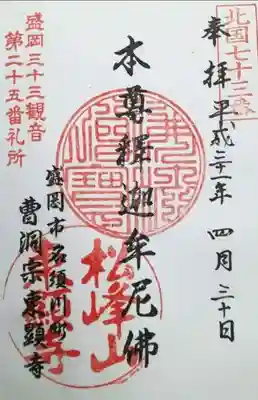 北国七十三番
奉拝 平成二十一年 四月三十日
本尊釋迦牟尼佛
盛岡三十三観音
第二十五番礼所
盛岡市名須川町
曹洞宗東顕寺
松峰山
東顕寺